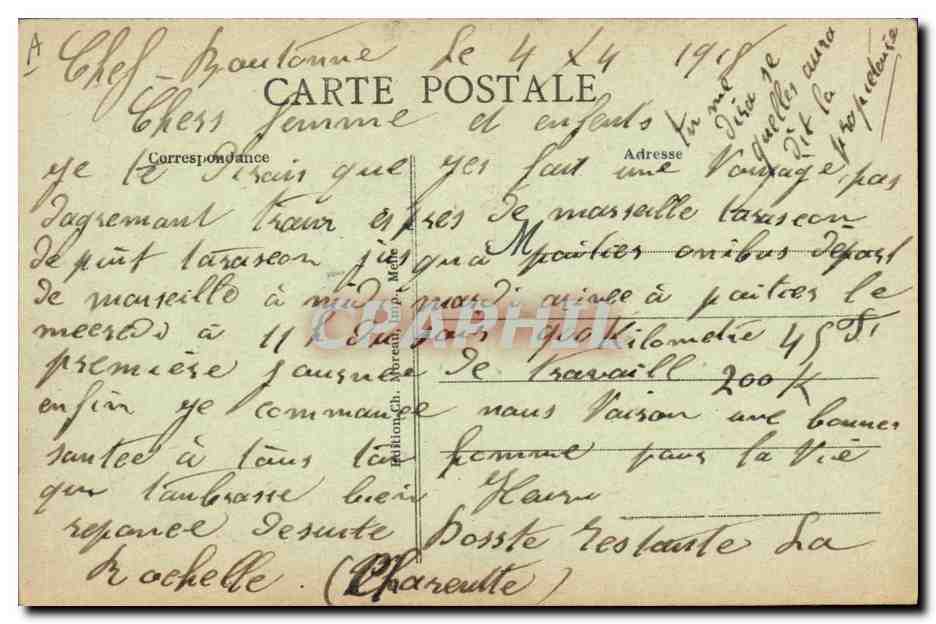 A
Chef-Boutonne Le 4 X 4 1918
CARTE POSTALE
Chers femme et enfents
Correspondance
Adresse
ye te Dirais que yes fait une Voyage pas
dagremant train espres de marseille tarascon
depuit tarascon jusqua poitier onibus départ
M
de marseille à midi mardi arivee à poitier le
mecredi à 11 h du soir 900 Kilometre
première journee de travaill 200 K
enfin ye commance nous Vaison une bonnes
santee à tous ton homme pour la Vie
qui tanbrasse bien Henri
reponce desuite Posste restante La
Rochelle. (Charentte)
tu me
dira se
quelles aura
dit la
propietaire
Edition Ch. Moreau, Imp., Melle
CPAPHIL